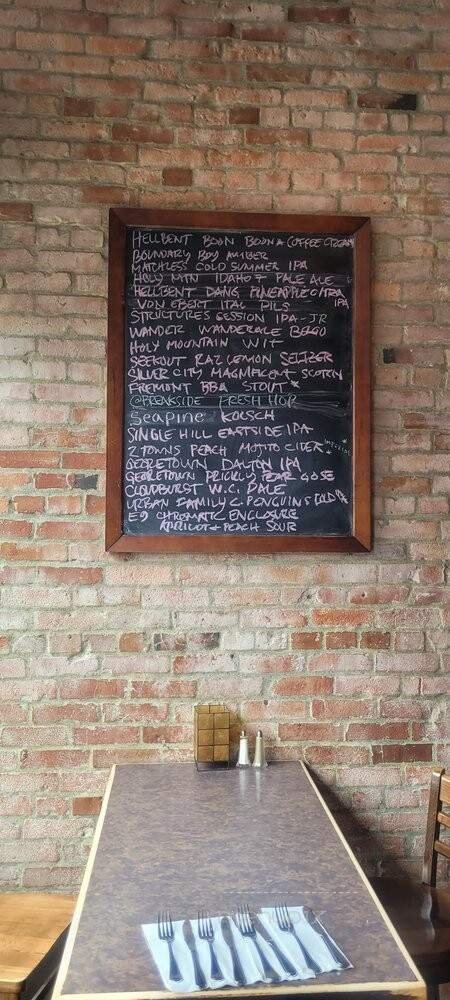 HELLBENT BOON BOONA COFFEE CREAM
BOUNDARY BAY AMBER
MATCHLESS COLD SUMMER IPA
HOLY MTN IDAHO 7 PALE ALE
HELLBENT DANG PINEAPPLE CITRA IPA
VON EBERT ITAL PILS
STRUCTURES SESSION IPA-JR
WANDER WANDERALE BELGO
HOLY MOUNTAIN WIT
SEEKOUT RAZ LEMON SELTZER
SILVER CITY MAGNIFICENT SCOTCH
FREMONT BBA STOUT *
@BREAKSIDE FRESH HOP
Seapine KOLSCH
SINGLE HILL EASTSIDE IPA
2 TOWNS PEACH MOJITO CIDER *
GEORETOWN DALTON IPA
GEORETOWN PRICKLY PEAR GOSE
CLOUDBURST W.C. PALE
URBAN FAMILY PENGUINS COLD IPA
E9 CHROMATIC ENCLOSURE
APRICOT & PEACH SOUR